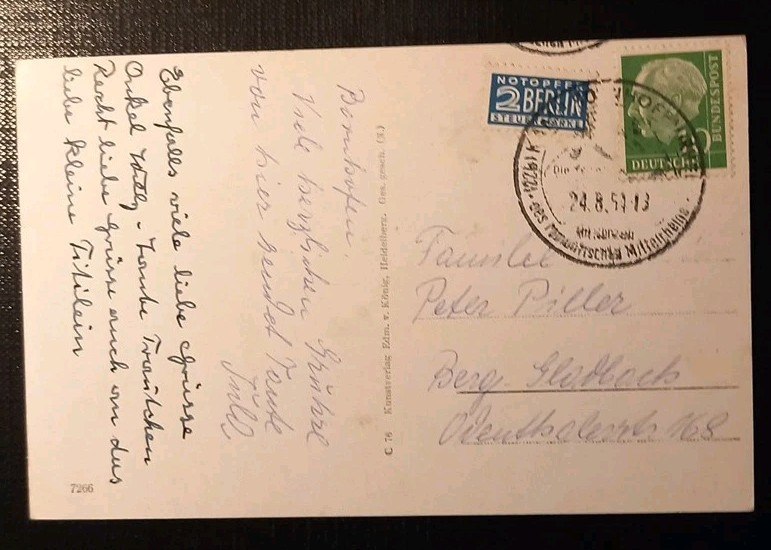 Ebenfalls viele liebe Grüsse
Onkel Willy - Tante Trautchen
Recht liebe Grüsse auch an das
liebe kleine Titilein
Bornhofen.
Viele herzlichen Grüße
von hier sendet Tante
C 76 Kunstverlag Edm. v. König, Heidelberg. Ges. gesch. (K)
7266
NOTOPFER
2 BERLIN
STEUERMARKE
DEUTSCHE
BUNDESPOST
24.8.57-13
des romantischen Mittelrheins
Familie
Peter Piller
Berg-Gladbach
168